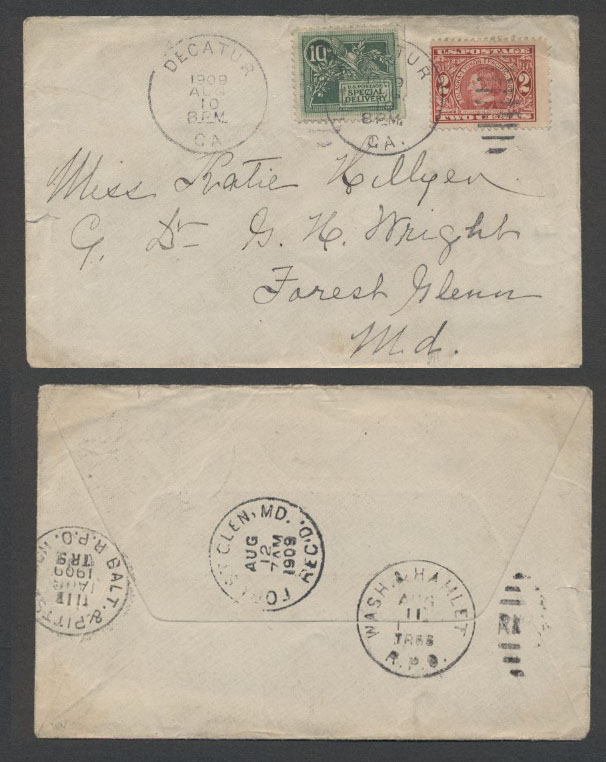 DECATUR
1909
AUG
10
8 P.M.
GA.
10¢
U.S. POSTAGE
SPECIAL
DELIVERY
DECATUR
8 P.M.
GA.
U.S. POSTAGE
2 2
TWO CENTS
Miss Katie Hillyer
C. Dr G. H. Wright
Forest Glenn
Md.
BALT. & PITTS
R.P.O.
TR9
1909
AUG
11
FOREST GLEN, MD. REC'D.
AUG
12
7 AM
1909
WASH. & HAMLET
AUG
11
TR66
R.P.O.